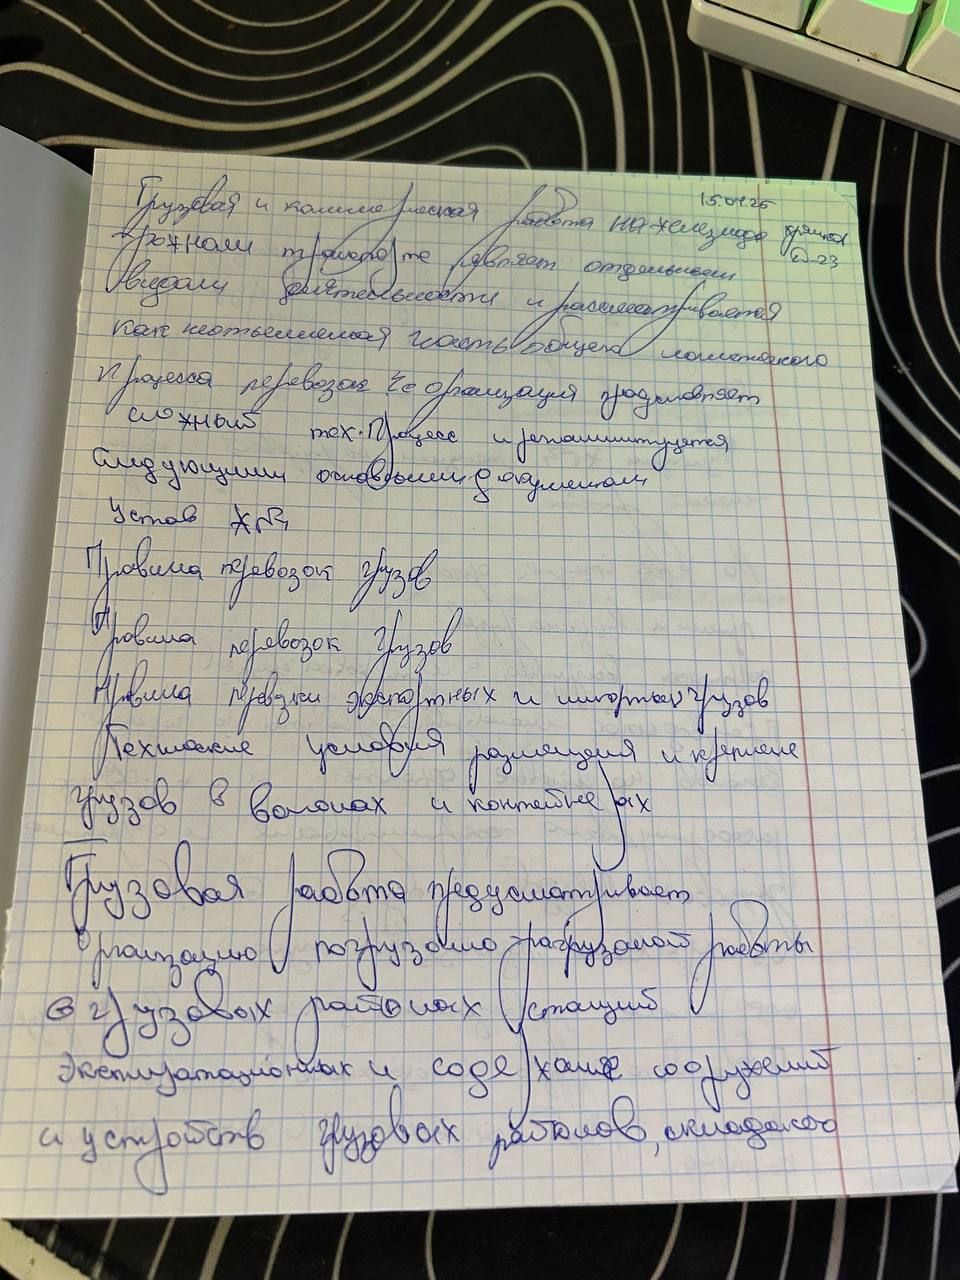 15.04.25
Грузовая и коммерческая работа на железнодо
рожном транспорте является отдельным
видом деятельности и рассматривается
как неотъемлемая часть общего
процесса перевозок Её организация представляет
сложный тех. процесс и регламентируется
следующими основными документами
Устав ЖД
Правила перевозок грузов
Правила перевозок грузов
Правила перевозки экспортных и импортных грузов
Технические условия размещения и крепление
грузов в вагонах и контейнерах
Грузовая работа предусматривает
организацию погрузочно-разгрузочной работы
в грузовых районах станций
и содержание сооружений
и устройств грузовых районов, складского